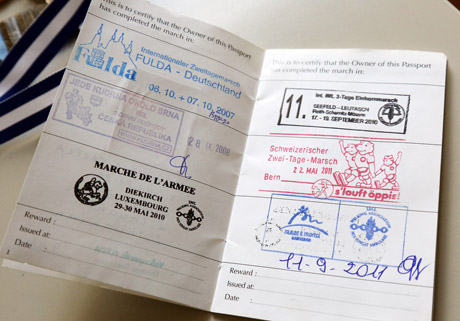 This is to certify that the Owner of this Passport
has completed the march in:
Internationaler Zweitagemarsch
Fulda
FULDA - Deutschland
06.10. + 07.10. 2007
JEDE KUDRNA OKOLO BRNA
ČESKÁ REPUBLIKA
MARCHE DE L'ARMEE
DIEKIRCH
LUXEMBOURG
29-30 MAI 2010
Reward :
Issued at:
Date :
This is to certify that the Owner of this Passport
has completed the march in:
11.
Int. IML 2-Tage Einhornmarsch
SEEFELD - LEUTASCH
17.- 19. SEPTEMBER 2010
Schweizerischer
Zwei-Tage-Marsch
22. MAI 2011
Bern
s'louft öppis!
11-9-2011
Reward :
Issued at:
Date :